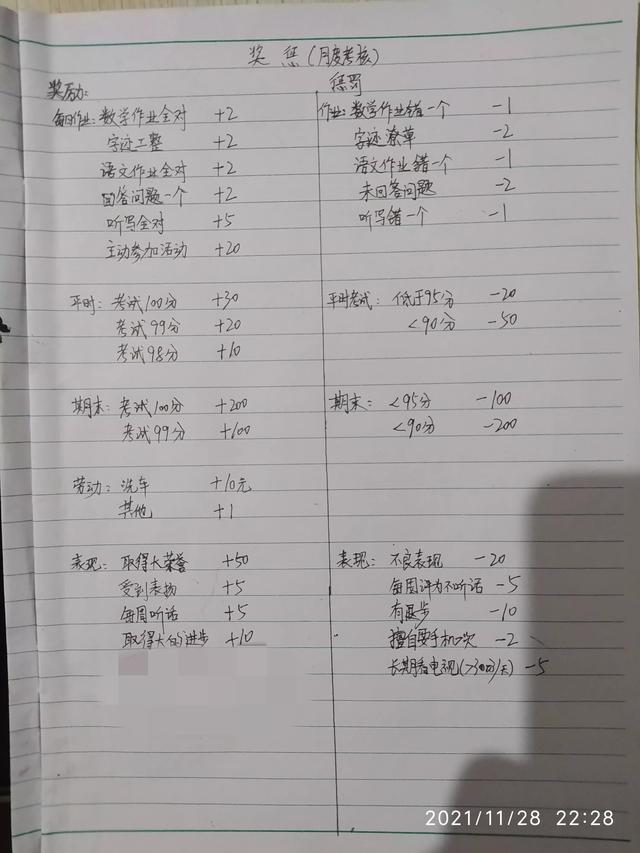 奖惩(月度考核)
奖励:
每日作业:数学作业全对 +2
字迹工整 +2
语文作业全对 +2
回答问题一个 +2
听写全对 +5
主动参加活动 +20
平时:考试100分 +30
考试99分 +20
考试98分 +10
期末:考试100分 +200
考试99分 +100
劳动:洗车 +10元
其他 +1
表现:取得大荣誉 +50
受到表扬 +5
每周听话 +5
取得大的进步 +10
惩罚
作业:数学作业错一个 -1
字迹潦草 -2
语文作业错一个 -1
未回答问题 -2
听写错一个 -1
平时考试:低于95分 -20
<90分 -50
期末:<95分 -100
<90分 -200
表现:不良表现 -20
每周评为不听话 -5
有退步 -10
擅自耍手机一次 -2
长期看电视(>30分/天) -5
2021/11/28 22:28